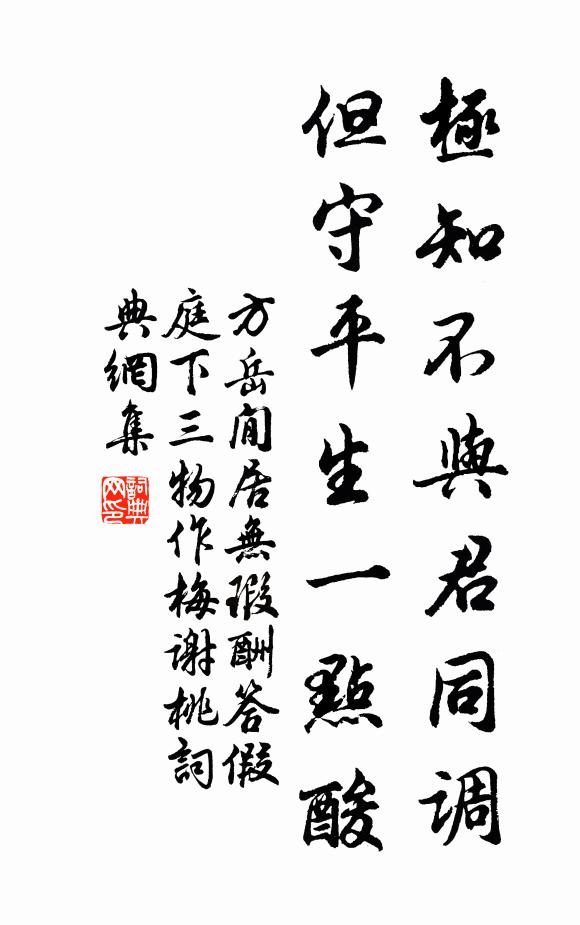 極知不與君同调
但守平生一點酸
方岳閒居無瑕酬答假
庭下三物作梅谢桃詞
典網集
詞典網印